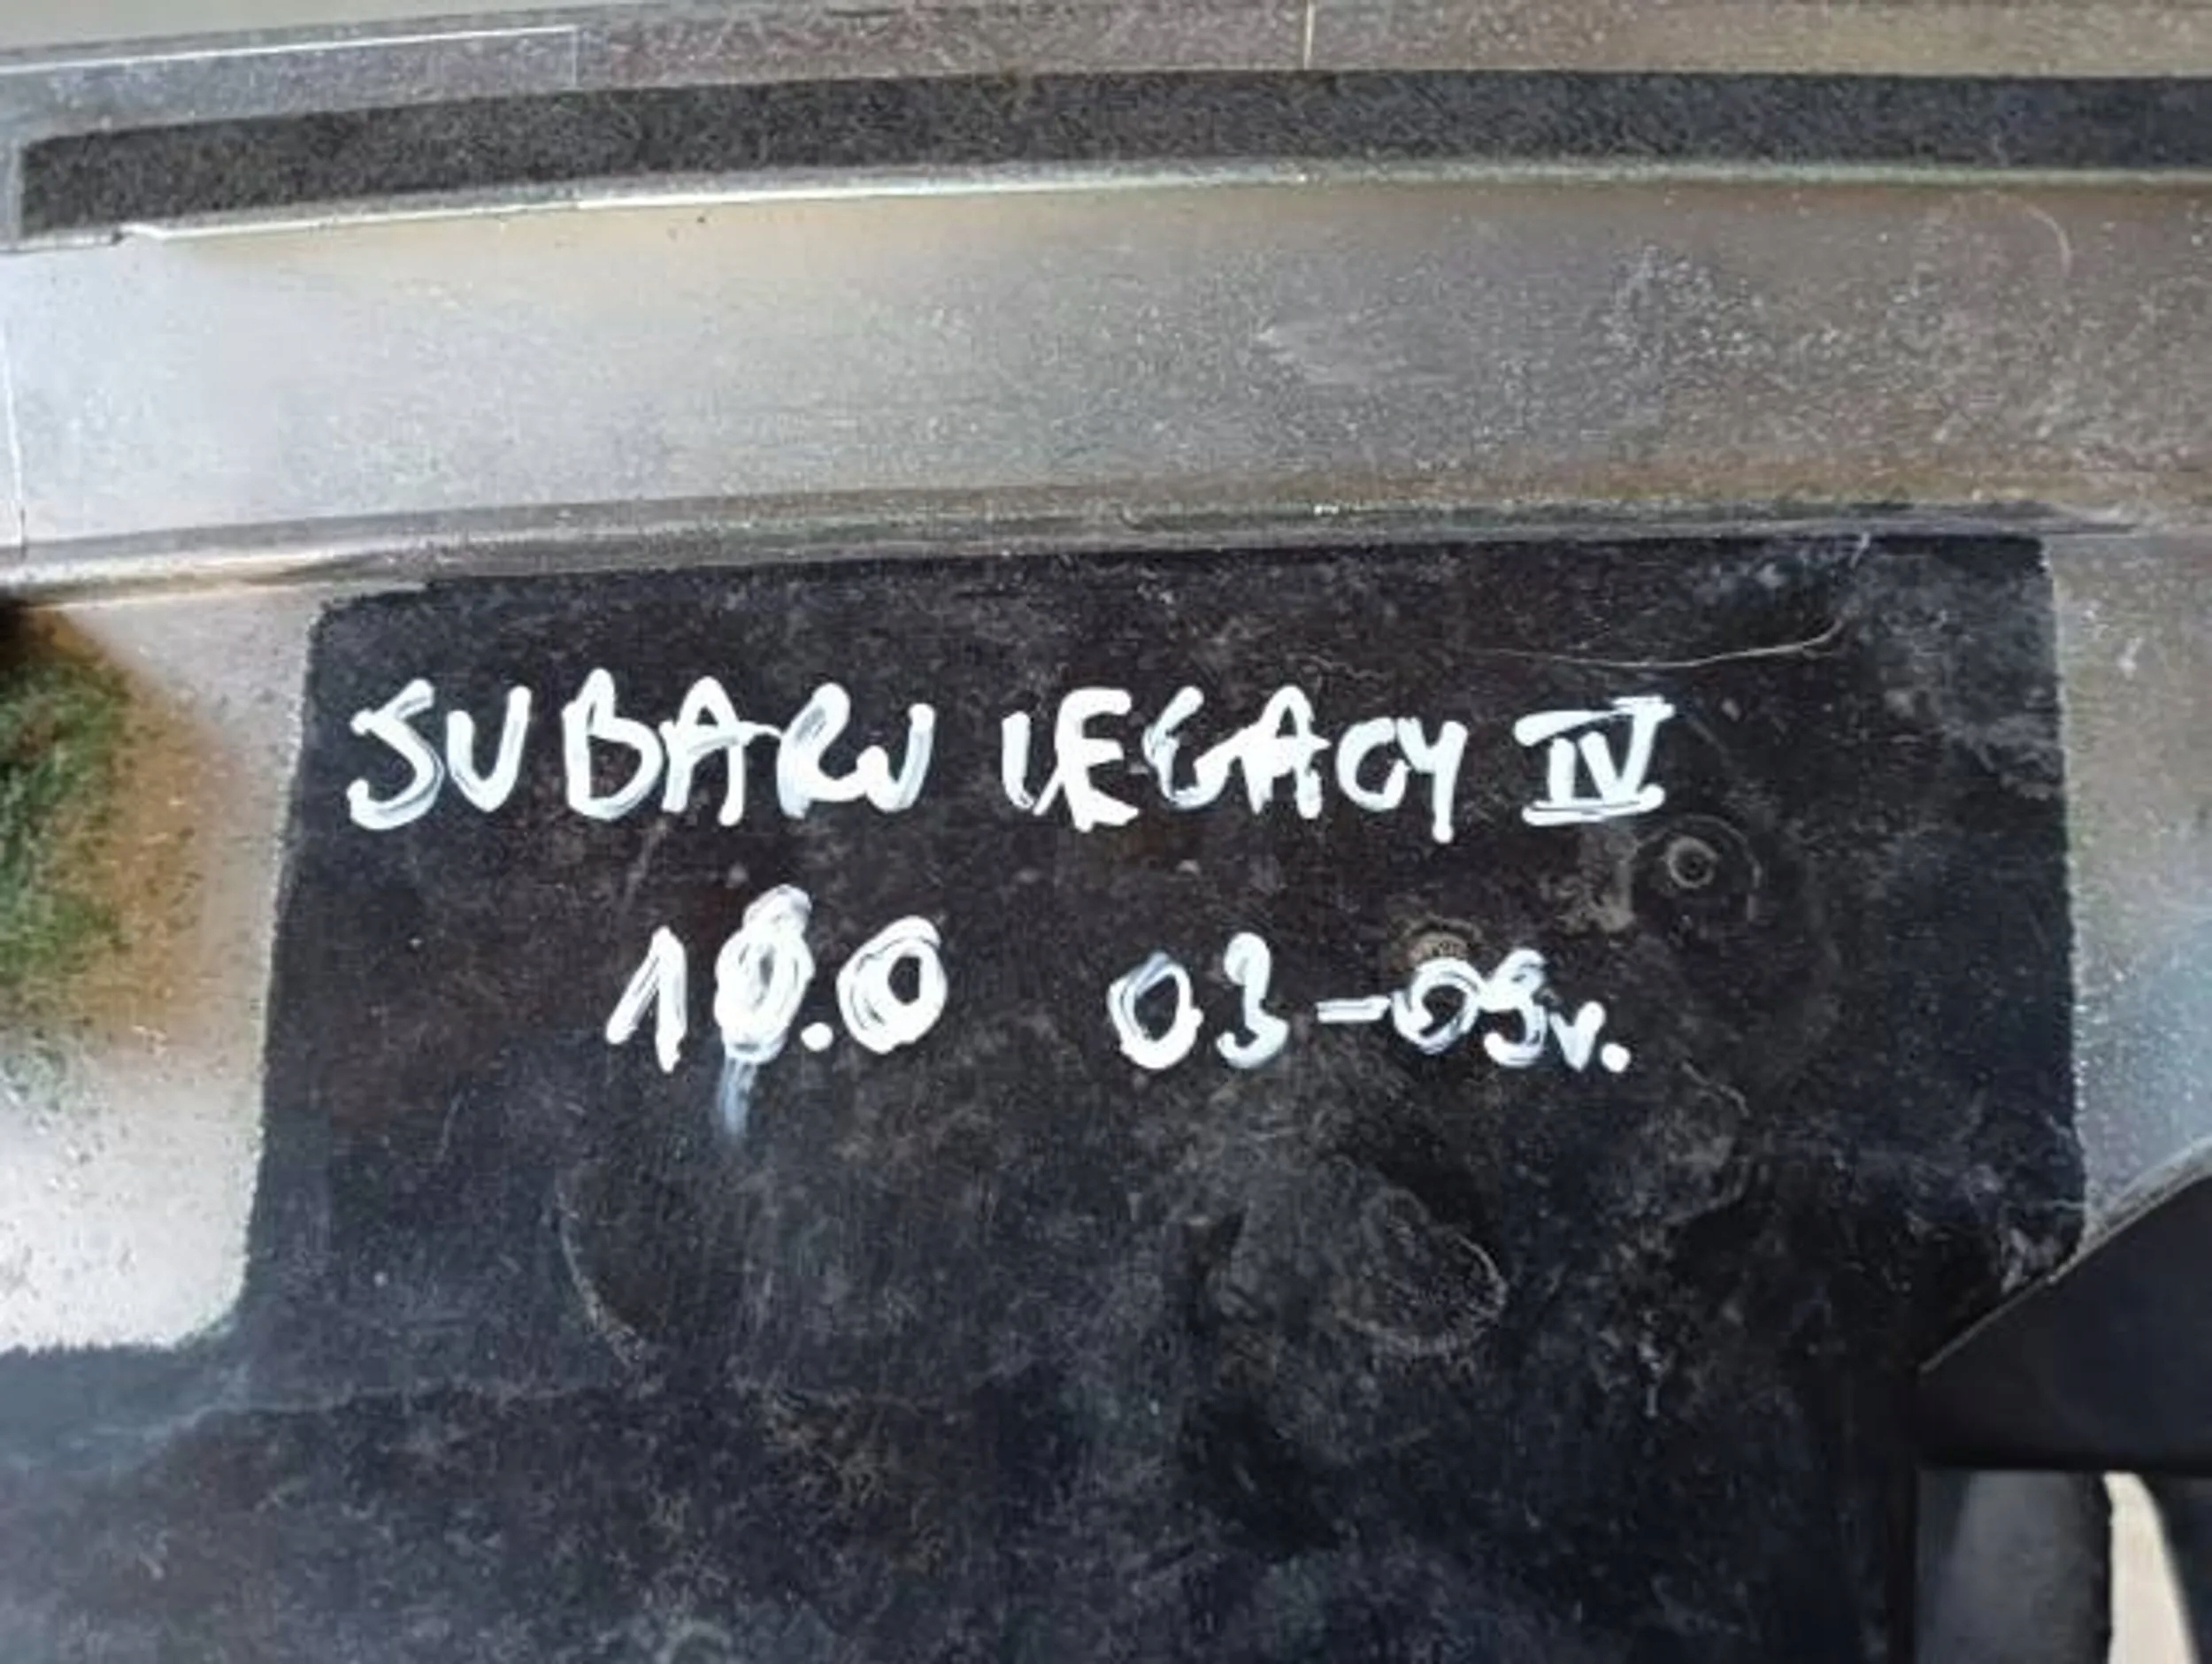 SUBARU LEGACY IV
10.0 03-09r.